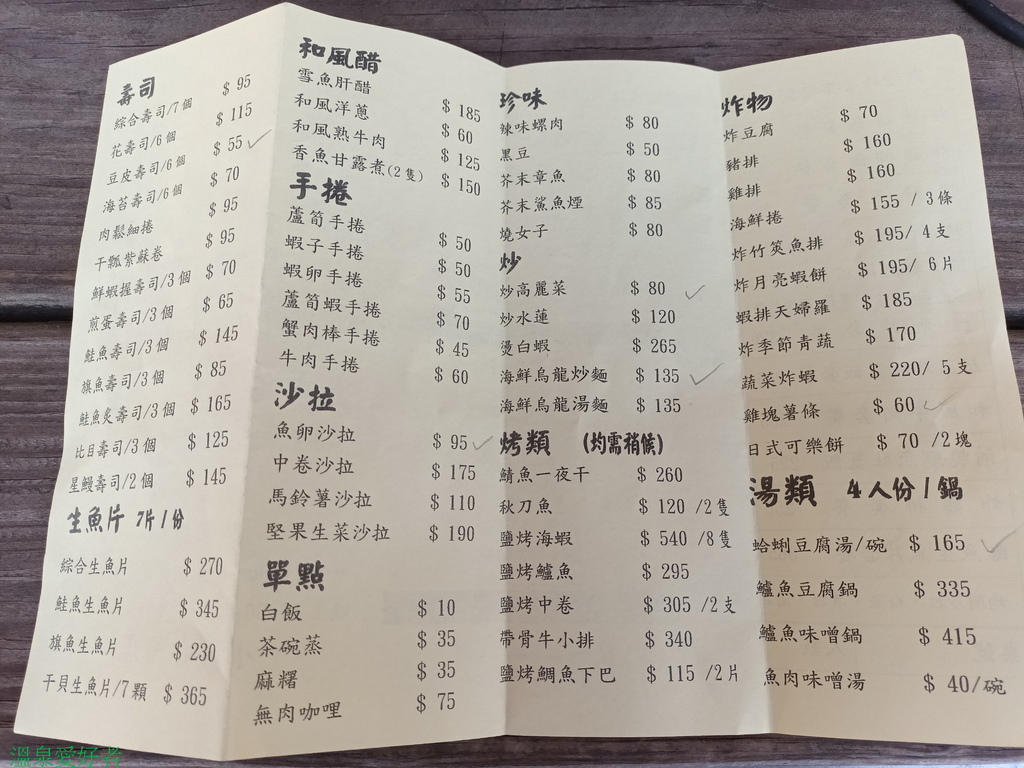 壽司
綜合壽司/7個 $ 95
花壽司/6個 $ 115
豆皮壽司/6個 $ 55
海苔壽司/6個 $ 70
肉鬆細捲 $ 95
干瓢紫蘇卷 $ 95
鮮蝦握壽司/3個 $ 70
煎蛋壽司/3個 $ 65
鮭魚壽司/3個 $ 145
旗魚壽司/3個 $ 85
鮭魚炙壽司/3個 $ 165
比目壽司/3個 $ 125
星鰻壽司/2個 $ 145
生魚片 7片1份
綜合生魚片 $ 270
鮭魚生魚片 $ 345
旗魚生魚片 $ 230
干貝生魚片/7顆 $ 365
和風醋
雪魚肝醋 $ 185
和風洋蔥 $ 60
和風熟牛肉 $ 125
香魚甘露煮(2隻) $ 150
手捲
蘆筍手捲 $ 50
蝦子手捲 $ 50
蝦卵手捲 $ 55
蘆筍蝦手捲 $ 70
蟹肉棒手捲 $ 45
牛肉手捲 $ 60
沙拉
魚卵沙拉 $ 95
中卷沙拉 $ 175
馬鈴薯沙拉 $ 110
堅果生菜沙拉 $ 190
單點
白飯 $ 10
茶碗蒸 $ 35
麻糬 $ 35
無肉咖哩 $ 75
珍味
辣味螺肉 $ 80
黑豆 $ 50
芥末章魚 $ 80
芥末鯊魚煙 $ 85
燒女子 $ 80
炒
炒高麗菜 $ 80
炒水蓮 $ 120
燙白蝦 $ 265
海鮮烏龍炒麵 $ 135
海鮮烏龍湯麵 $ 135
烤類 (均需稍候)
鯖魚一夜干 $ 260
秋刀魚 $ 120 /2隻
鹽烤海蝦 $ 540 /8隻
鹽烤鱸魚 $ 295
鹽烤中卷 $ 305 /2支
帶骨牛小排 $ 340
鹽烤鯛魚下巴 $ 115 /2片
炸物
炸豆腐 $ 70
豬排 $ 160
雞排 $ 160
海鮮捲 $ 155 / 3條
炸竹筴魚排 $ 195/ 4支
炸月亮蝦餅 $ 195/ 6片
蝦排天婦羅 $ 185
炸季節青蔬 $ 170
蔬菜炸蝦 $ 220/ 5支
雞塊薯條 $ 60
日式可樂餅 $ 70 /2塊
湯類 4人份1鍋
蛤蜊豆腐湯/碗 $ 165
鱸魚豆腐鍋 $ 335
鱸魚味噌鍋 $ 415
魚肉味噌湯 $ 40/碗
溫泉愛好者